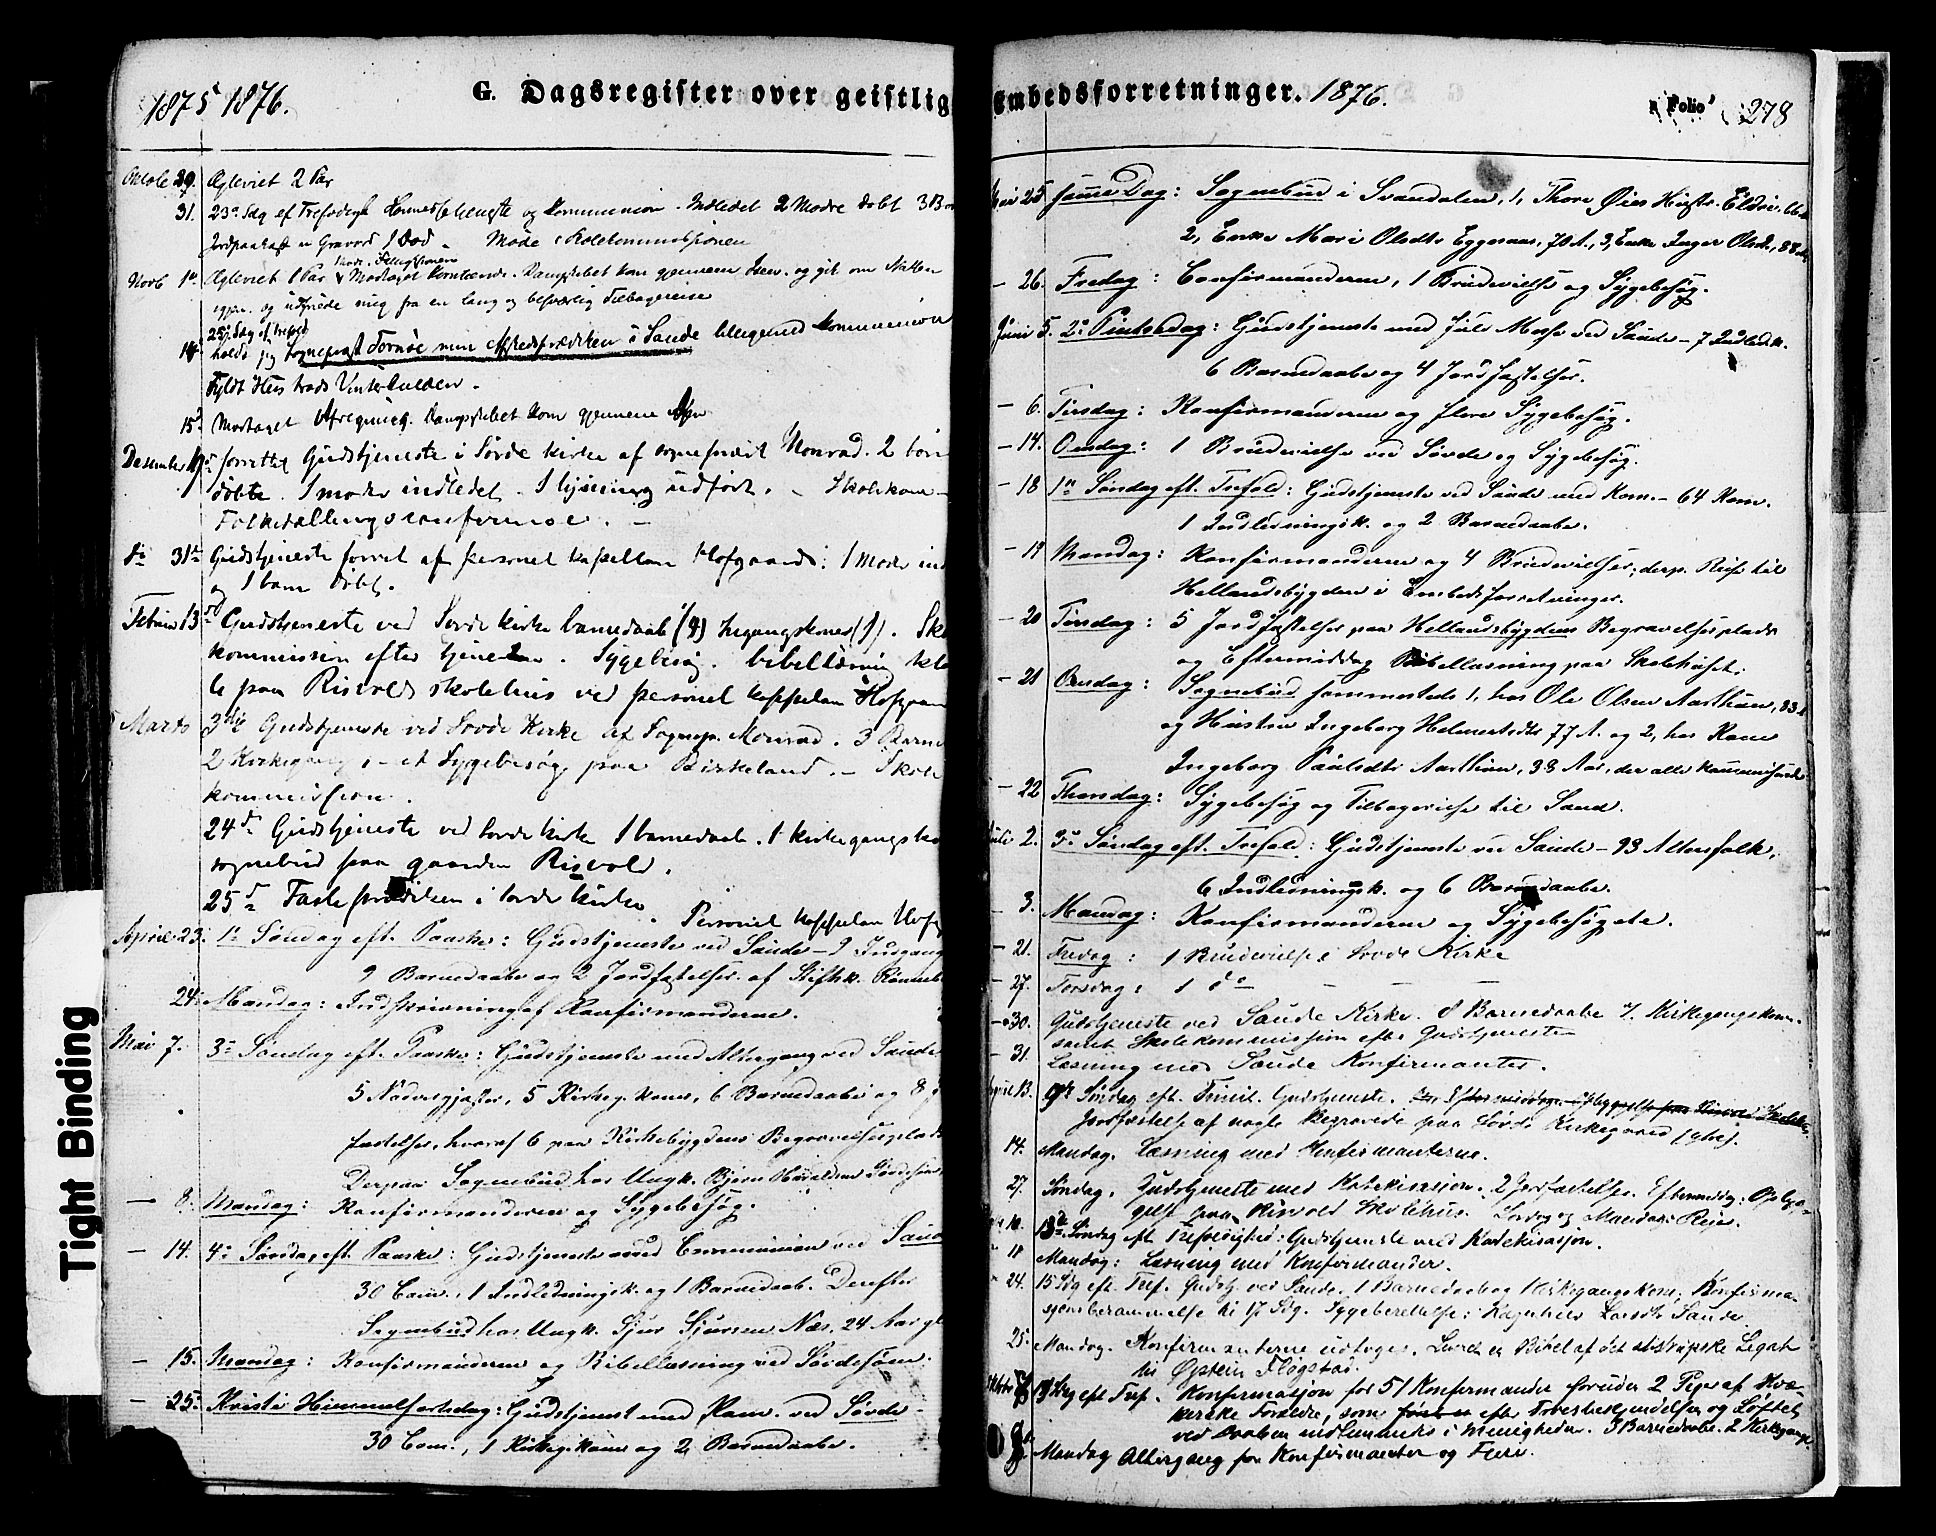 1875 1876.
G. Dagsregister over geistlig
Octob 29. Ægteviet 2 Par
31. 23de Sdg ef Trefoldigh og Kommunion. Indledet 2 Mødre døbt 3 B
Jordpaakast en Gravord 1 Død. Møde i Skolekommissionen
Novb 1te Ægteviet 1 Par Modtaget Dampskibet kom gjennem Isen og gik om Natten
igjen og udfriede mig fra en lang og besværlig Tilbagereise
25de Sdg ef trefold
14. holdt jeg Sogneprest Tornøe min Afskedsprædiken i Saude tilligemed Kommunion
Fyldt Huus trods Vinterkulden.
15d Modtaget Dampskibet kom gjennem
December 19de forrettet Gudstjeneste i Søvde kirke af sogneprest Monrad. 2 børn
døbte. 1 moder indledet. 1 lysning udført. – Skolekom-
Folketællingsconference. –
do 31te Gudstjeneste forret af personel kapellan Hofgaard: 1 Mode ind
og 1 barn døbt.
Februar 13d Gudstjeneste ved Sovde kirke barnedaab (1) Ingangskoner (1). Sko
kommission efter tjenesten. Sygebesøg. bibellæsning
paa Risvolds skolehus ved personel kappelan Hofgaar
Marts 3die Gudstjeneste ved Sovde Kirke af Sognepr. Monrad. 3 Barne
2 Kirkegang, – et Sygebesøg paa Birkeland. – Skole
kommission.
24d Gudstjeneste ved Sovde kirke 1 barnedaab. 1 kirkegangsko
sognebud paa gaarden Risvold.
25d Fasteprædiken i Sovde kirke.
Personel kappelan Hofg
April 23. 1e Søndag eft. Paaske: Gudstjeneste ved Saude – 9 Indgang
9 Barnedaabe og 2 Jordfæstelser af Stiftsk.
24. Mandag: Indskrivning af Konfirmanderne.
Mai 7. 3e Søndag eft. Paaske: Gudstjeneste med Altergang ved Saude
5 Nadvergjæster, 5 Kirkeg. koner, 6 Barnedaabe og 8 J
fæstelser, hvoraf 6 paa Kirkebygdens Begravelsesplads
Derpaa Sognebud hos Ungk. Bjørn
— 8. Mandag: Konfirmanderne og Sygebesøg.
— 14. 4e Søndag eft. Paaske: Gudstjeneste med Communion ved Saud
30 Com., 1 Indledningsk. og 1 Barnedaab. Derefter
Sognebud hos Ungk. Sjur Sjursen Næs, 24 Aar gl
— 15. Mandag: Konfirmanderne og Bibellæsning ved Søvdesøen.
— 25. Kristi Himmelfartsdag: Gudstjenest med Kom. ved Søvde –
30 Com., 1 Kirkeg. kone og 2 Barnedaabe.
Embedsforretninger. 1876.
Folio 278
Mai 25 samme Dag: Sognebud i Svandalen, 1, Thore
2, Enke Mari Olsdtr Eggesaas, 70 A., 3, Enke Inger Olsd., 88 A.
— 26. Fredag: Confirmanderne, 1 Brudevielse og Sygebesøg.
Juni 5. 2e Pintsedag: Gudstjeneste med fuld Messe ved Saude – 7 Indledsk.
6 Barnedaabe og 4 Jordfæstelser.
— 6. Tirsdag: Konfirmanderne og flere Sygebesøg.
— 14. Onsdag: 1 Brudevielse ved Søvde og Sygebesøg.
— 18 1e Søndag eft. Trefold: Gudstjeneste ved Saude med Kom. – 64 Kom.
1 Indledningsk. og 2 Barnedaabe.
— 19 Mandag: Konfirmanderne og 4 Brudevielser; derp. Reise til
Hellandsbygden i Embedsforretninger.
— 20 Tirsdag: 5 Jordfæstelser paa Hellandsbygdens Begravelsesplads
og Eftermiddag Bibellæsning paa Skolehuset.
— 21 Onsdag: Sognebud sammesteds 1, hos Ole Olsen Aarthun, 83 A
og Hustru Ingeborg Helmertsdtr 77 A. og 2, hos Kone
Ingeborg Paulsdtr Aarthun, 38 Aar, der alle
— 22 Thorsdag: Sygebesøg og Tilbagereise til Sand.
Juli 2. 3e Søndag eft. Trefold: Gudstjeneste ved Saude – 93 Altersfolk,
6 Indledningsk. og 6 Barnedaabe.
3. Mandag: Konfirmanderne og Sygebesøg etc.
— 21. Fredag: 1 Brudevielse i Sovde Kirke
— 27. Torsdag: 1 do — — — —
— 30. Gudstjeneste ved Saude Kirke. 8 Barnedaabe 7. Kirkegangskon.
samt Skolekommission efter Gudstjenesten
— 31. Læsning med Saude Konfirmanter.
August 13. 9de Søndag eft. Trinit. Gudstjeneste.
Jordfæstelse af nogle Begravede paa Søvde Kirkegaard
14. Mandag. Læsning med Konfirmanterne.
27. Søndag. Gudstjeneste med Katekisasjon. 2 Jordfæstelser. Eftermiddag: Opbyg-
gelse paa Risvold Skolehus. Lordag og Mandag: Reise.
13de Søndag eft Trefoldighed: Gudstjeneste med Katekisasjon.
18 Mandag: Læsning med Konfirmander.
24. 15 Sdg eft Tref. Gudstj. ved Saude. 1 Barnedaab og Kirkegangskone; Konfirma-
sjons berammelse til 17 Sdg. Sygeberettelse: Ragnhild Larsdtr Saude
25. Mandag. Konfirmanterne udtoges. Lovet en Bibel af det Legat
til Øystein Fløgstad.
Sdg eft Tref. Konfirmasjon for 51 Konfirmander foruden 2 Piger af Kvæ-
kerske Forældre, som efter Troesbekjendelsen og Løftet
ved Daaben indlemmedes i Menigheden. 3 Barnedaabe. 2 Kirkegange
Mandag Altergang for Konfirmanter og Flere.
Tight Binding